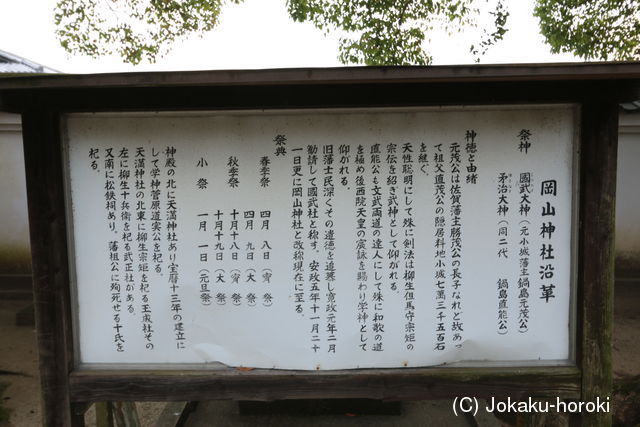 岡山神社沿革
祭神 國武大神(元小城藩主鍋島元茂公)
矛治大神(同二代 鍋島直能公)
神徳と由緒
元茂公は佐賀藩主勝茂公の長子なれど故あっ
て祖父直茂公の隠居料地小城七萬三千五百石
を継ぐ。
天性聡明にして殊に剣法は柳生但馬守宗矩の
宗伝を紹ぎ武神として仰がれる。
直能公も文武両道の達人にして殊に和歌の道
を極め後西院天皇の宸詠を賜わり学神として
仰がれる。
旧藩士民深くその遺徳を追慕し寛政元年二月
勧請して國武社と称す。安政五年十一月二十
一日更に岡山神社と改称現在に至る。
祭典
春季祭 四月 八日(宵 祭)
四月 九日(大 祭)
秋季祭 十月十八日(宵 祭)
十月十九日(大 祭)
小 祭 一月 一日(元旦祭)
神殿の北に天満神社あり宝暦十三年の建立に
して学神菅原道実公を祀る。
天満神社の北東に柳生宗矩を祀る玉成社その
左に柳生十兵衛を祀る武正社がある。
又南に松鉄祠あり。藩祖公に殉死せる十氏を
祀る。
(C) Jokaku-horoki